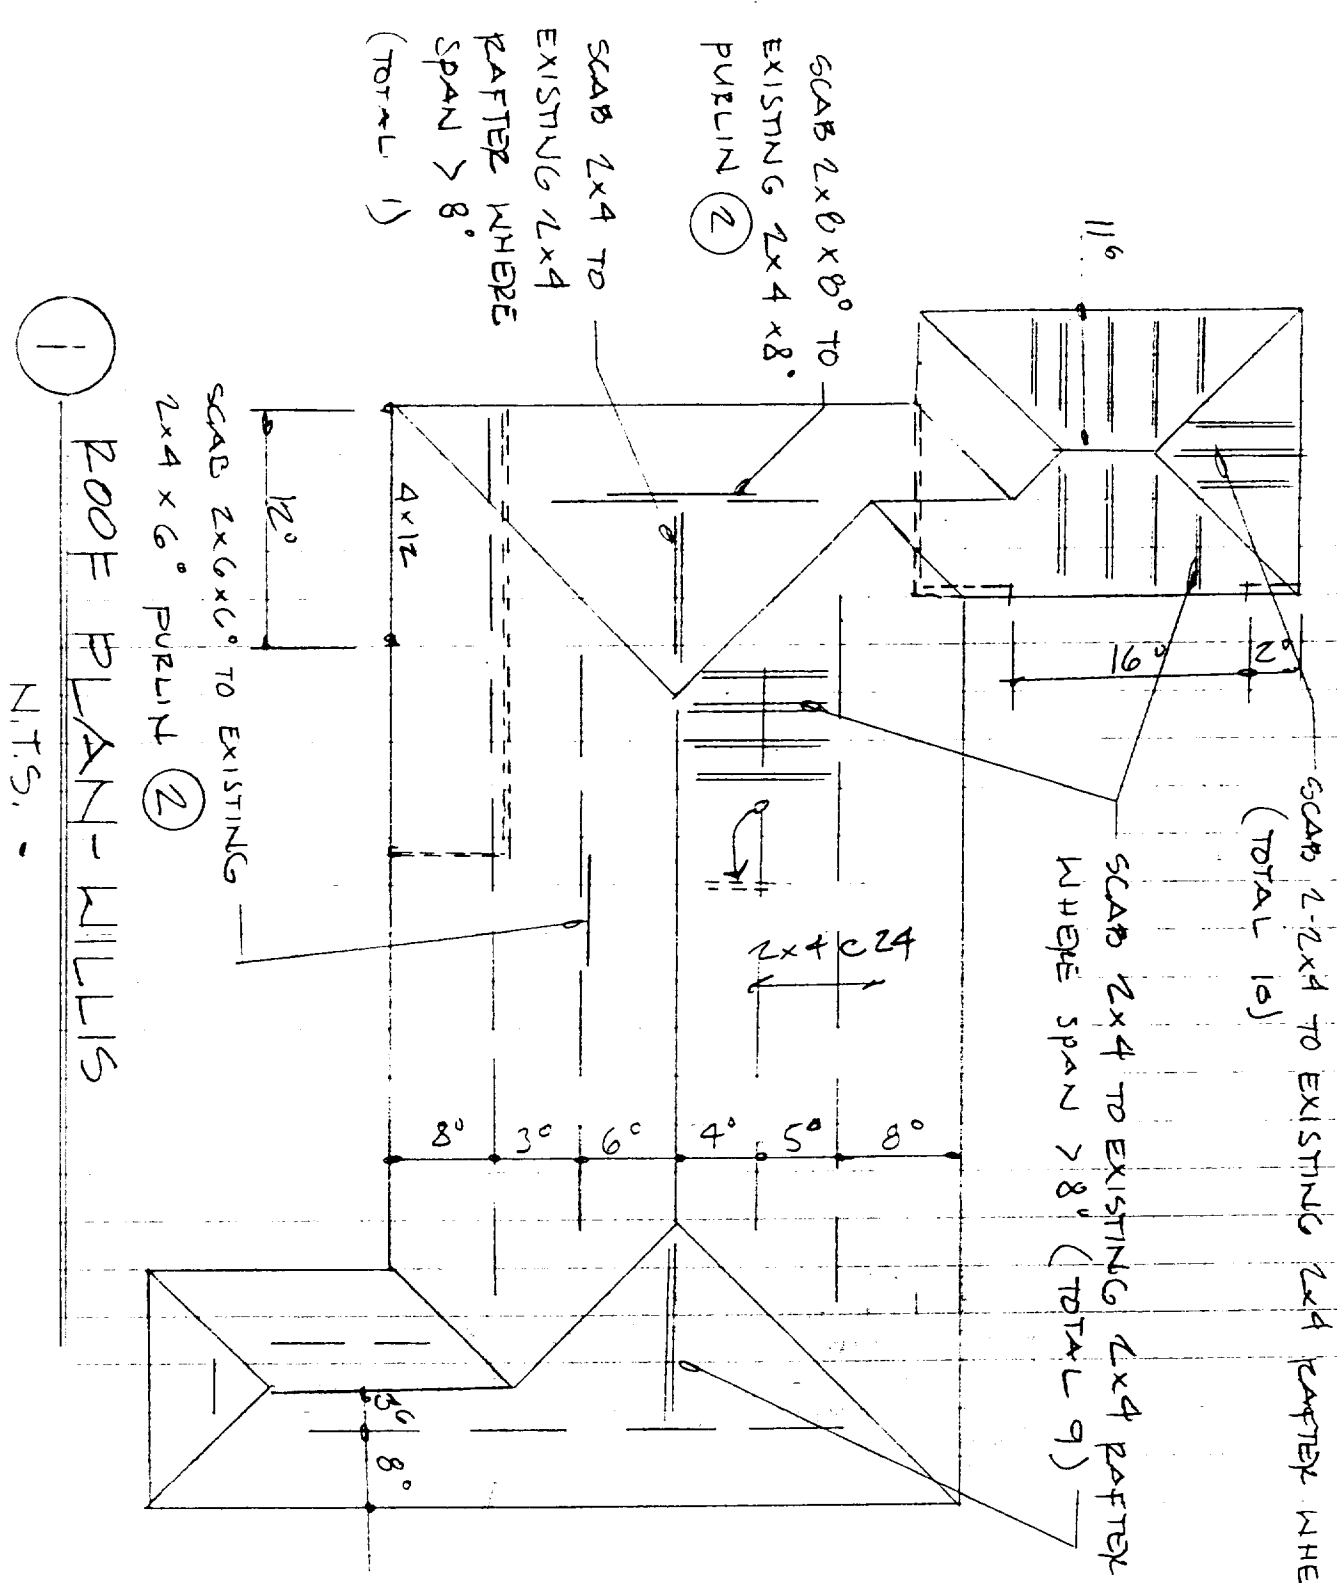 SCAB 2-2x4 TO EXISTING 2x4 RAFTER WHE
(TOTAL 10)
SCAB 2x4 TO EXISTING 2x4 RAFTER
WHERE SPAN > 8° (TOTAL 9)
11⁶
16°
2°
SCAB 2x8x8° TO
EXISTING 2x4x8°
PURLIN 2
SCAB 2x4 TO
EXISTING 2x4
RAFTER WHERE
SPAN > 8°
(TOTAL 1)
2x4 @ 24
8°
3°
6°
4°
5°
8°
4x12
12°
3⁶
8°
SCAB 2x6x6° TO EXISTING
2x4x6° PURLIN 2
1
ROOF PLAN - WILLIS
N.T.S.